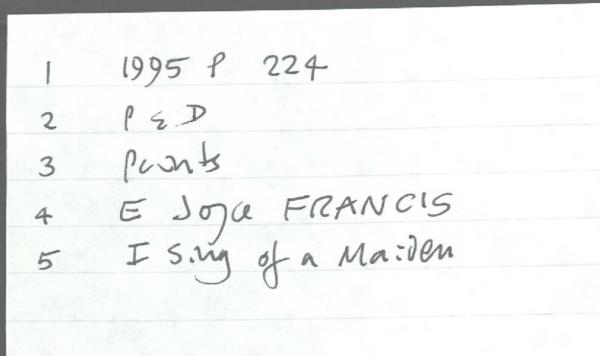 1 1995 P 224
2 P & D
3 Prints
4 E Joyce FRANCIS
5 I Sing of a Maiden